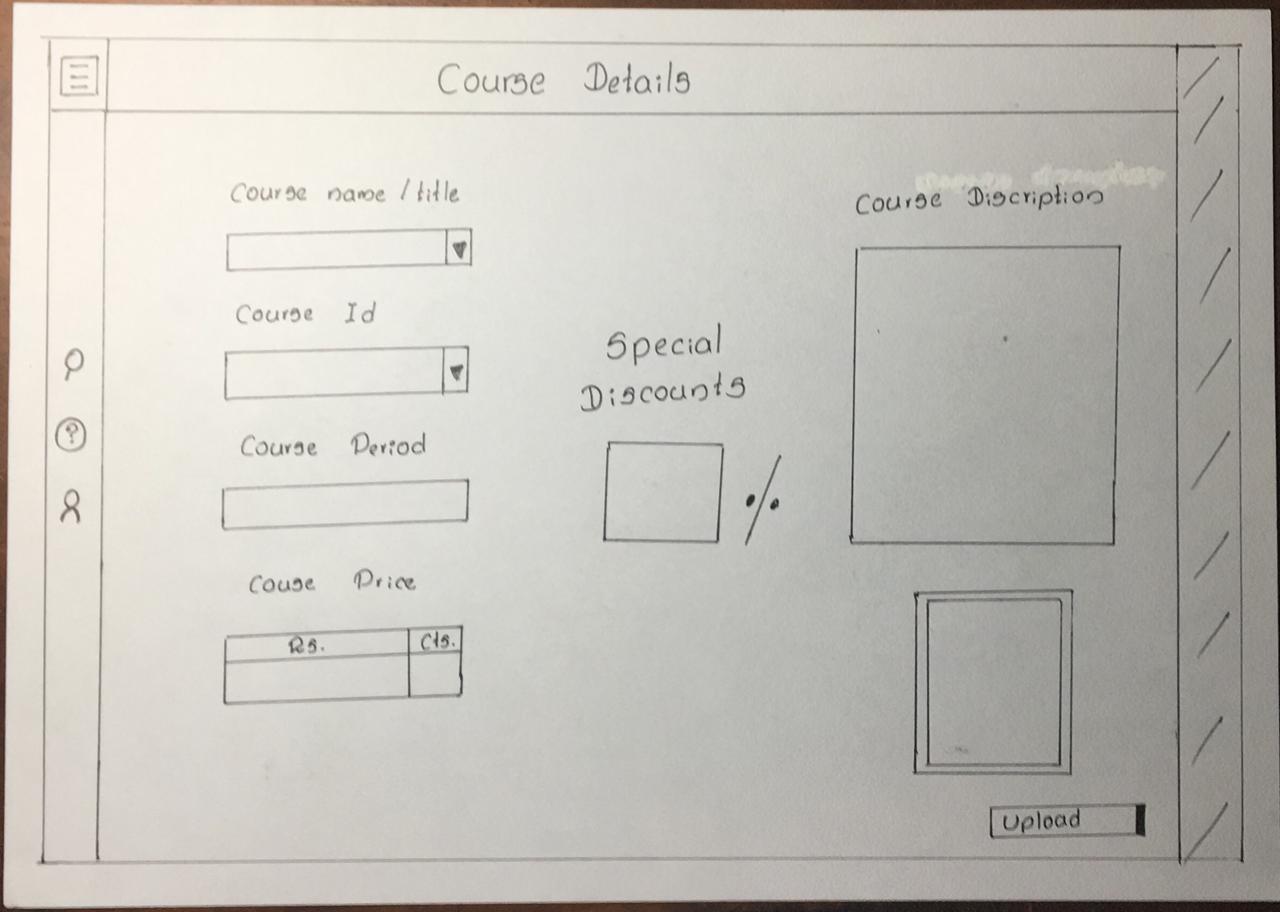 Course Details
Course name / title
Course Id
Course Period
Couse Price
Rs. Cts.
Special
Discounts
%
Course Discription
Upload
?